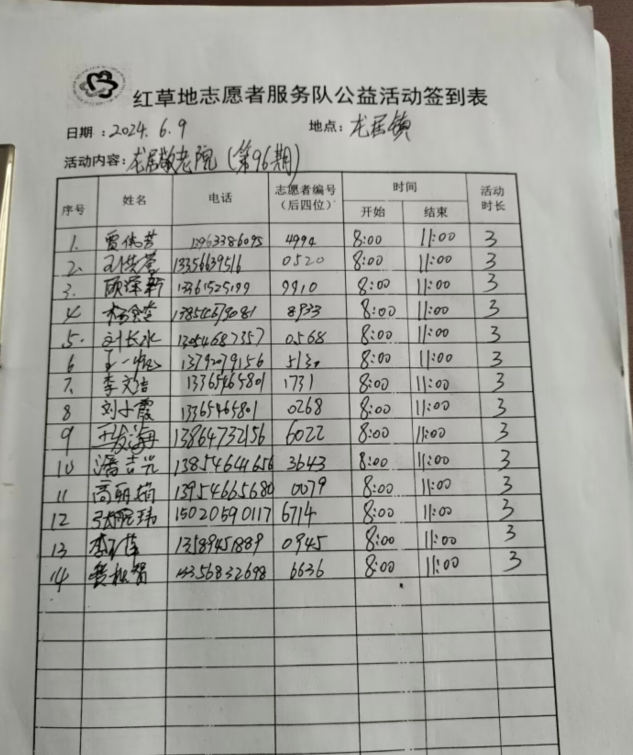 红草地志愿者服务队公益活动签到表
日期：2024.6.9 地点：龙居镇
活动内容：龙居敬老院（第96期）
序号 姓名 电话 志愿者编号（后四位） 时间 活动时长
开始 结束
1. 4994 8:00 11:00 3
2. 13356639516 0520 8:00 11:00 3
3. 13361525199 9910 8:00 11:00 3
4 8933 8:00 11:00 3
5. 刘长水 13054687357 0568 8:00 11:00 3
6 8:00 11:00 3
7. 李文洁 13365465801 1731 8:00 11:00 3
8 刘小霞 13365465801 0268 8:00 11:00 3
9 13864732156 6022 8:00 11:00 3
10 潘吉兴 13854641656 3643 8:00 11:00 3
11 高丽娟 13954665680 0079 8:00 11:00 3
12 15020590117 6714 8:00 11:00 3
13 13189451889 0945 8:00 11:00 3
14 13356832698 6636 8:00 11:00 3